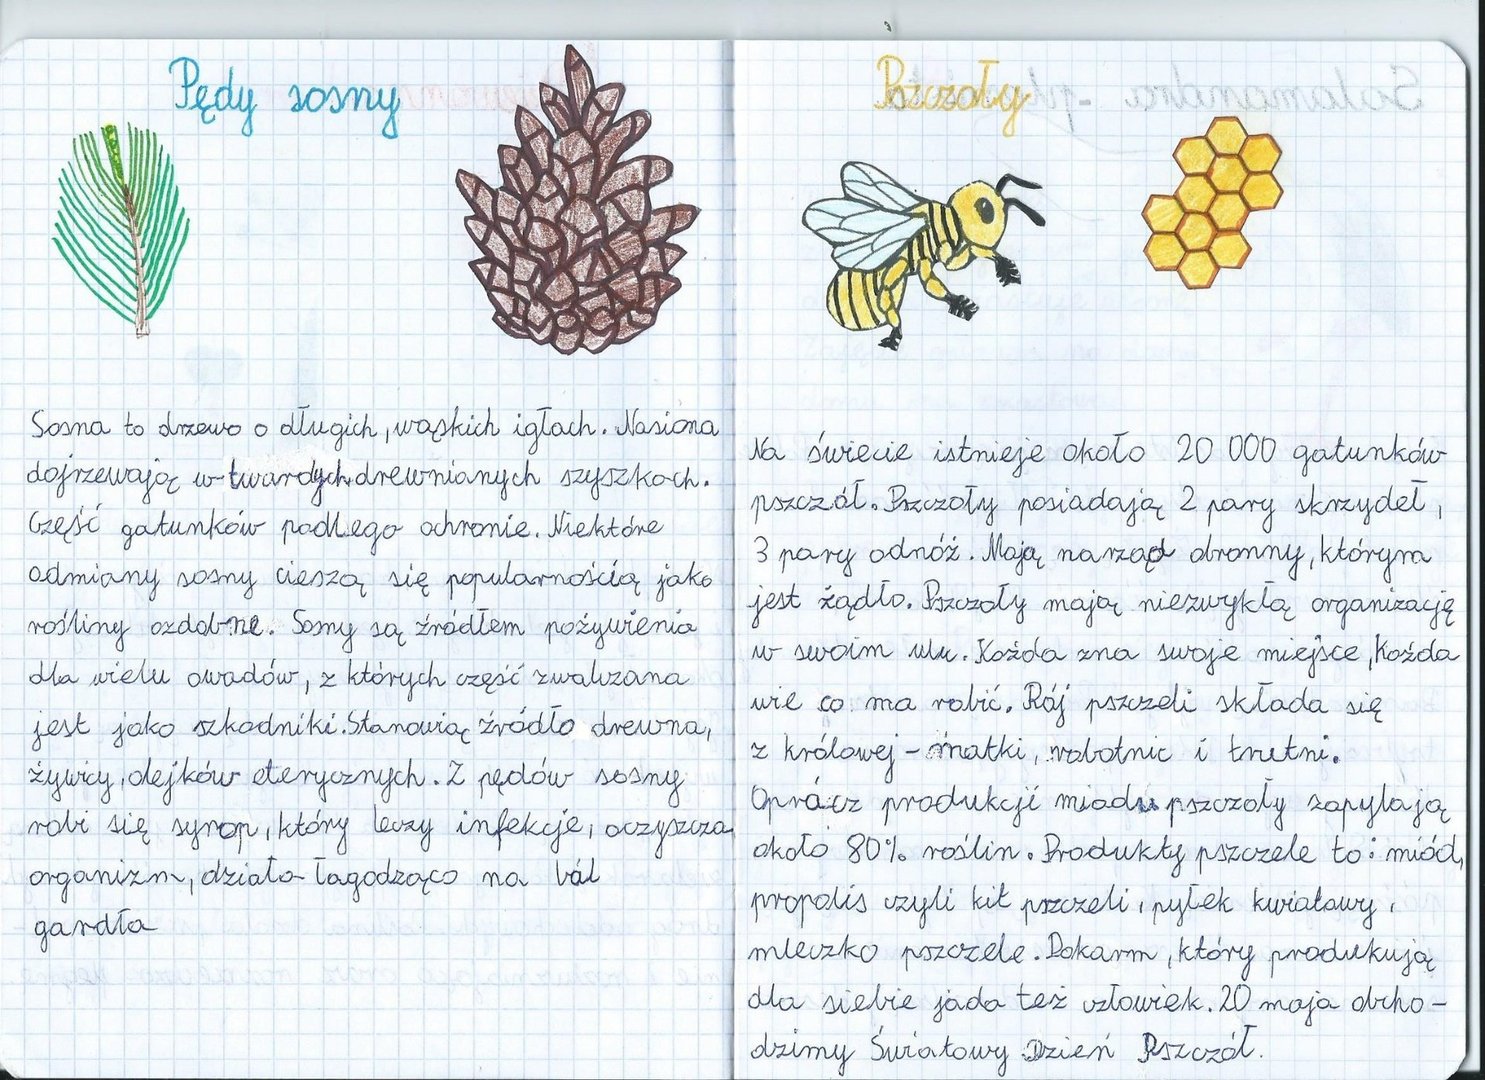 Pędy sosny
Sosna to drzewo o długich, wąskich igłach. Nasiona
dojrzewają w twardych drewnianych szyszkach.
Część gatunków podlega ochronie. Niektóre
odmiany sosny cieszą się popularnością jako
rośliny ozdobne. Sosny są źródłem pożywienia
dla wielu owadów, z których część zwalczana
jest jako szkodniki. Stanowią źródło drewna,
żywicy, olejków eterycznych. Z pędów sosny
robi się syrop, który leczy infekcje, oczyszcza
organizm, działa łagodząco na ból
gardła
Pszczoły
Na świecie istnieje około 20 000 gatunków
pszczół. Pszczoły posiadają 2 pary skrzydeł,
3 pary odnóż. Mają narząd obronny, którym
jest żądło. Pszczoły mają niezwykłą organizację
w swoim ulu. Każda zna swoje miejsce, każda
wie co ma robić. Rój pszczeli składa się
z królowej - matki, robotnic i trutni.
Oprócz produkcji miodu pszczoły zapylają
około 80% roślin. Produkty pszczele to: miód,
propolis czyli kit pszczeli, pyłek kwiatowy,
mleczko pszczele. Pokarm, który produkują
dla siebie jada też człowiek. 20 maja obcho-
dzimy Światowy Dzień Pszczół.